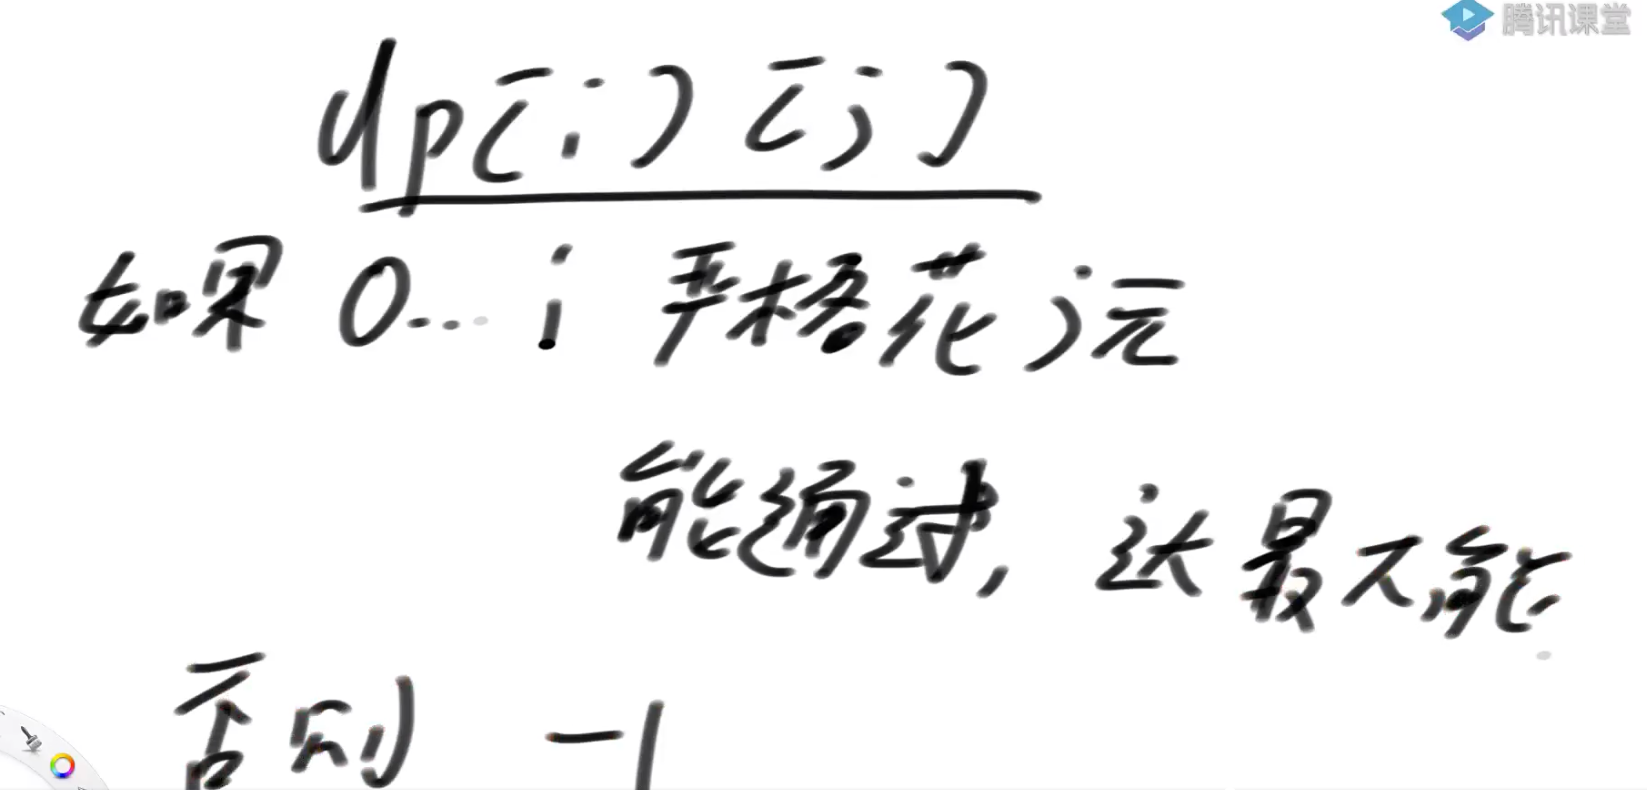 腾讯课堂
dp[i][j]
如果 0...i 严格花 j元
能通过, 达最大能
否则 -1